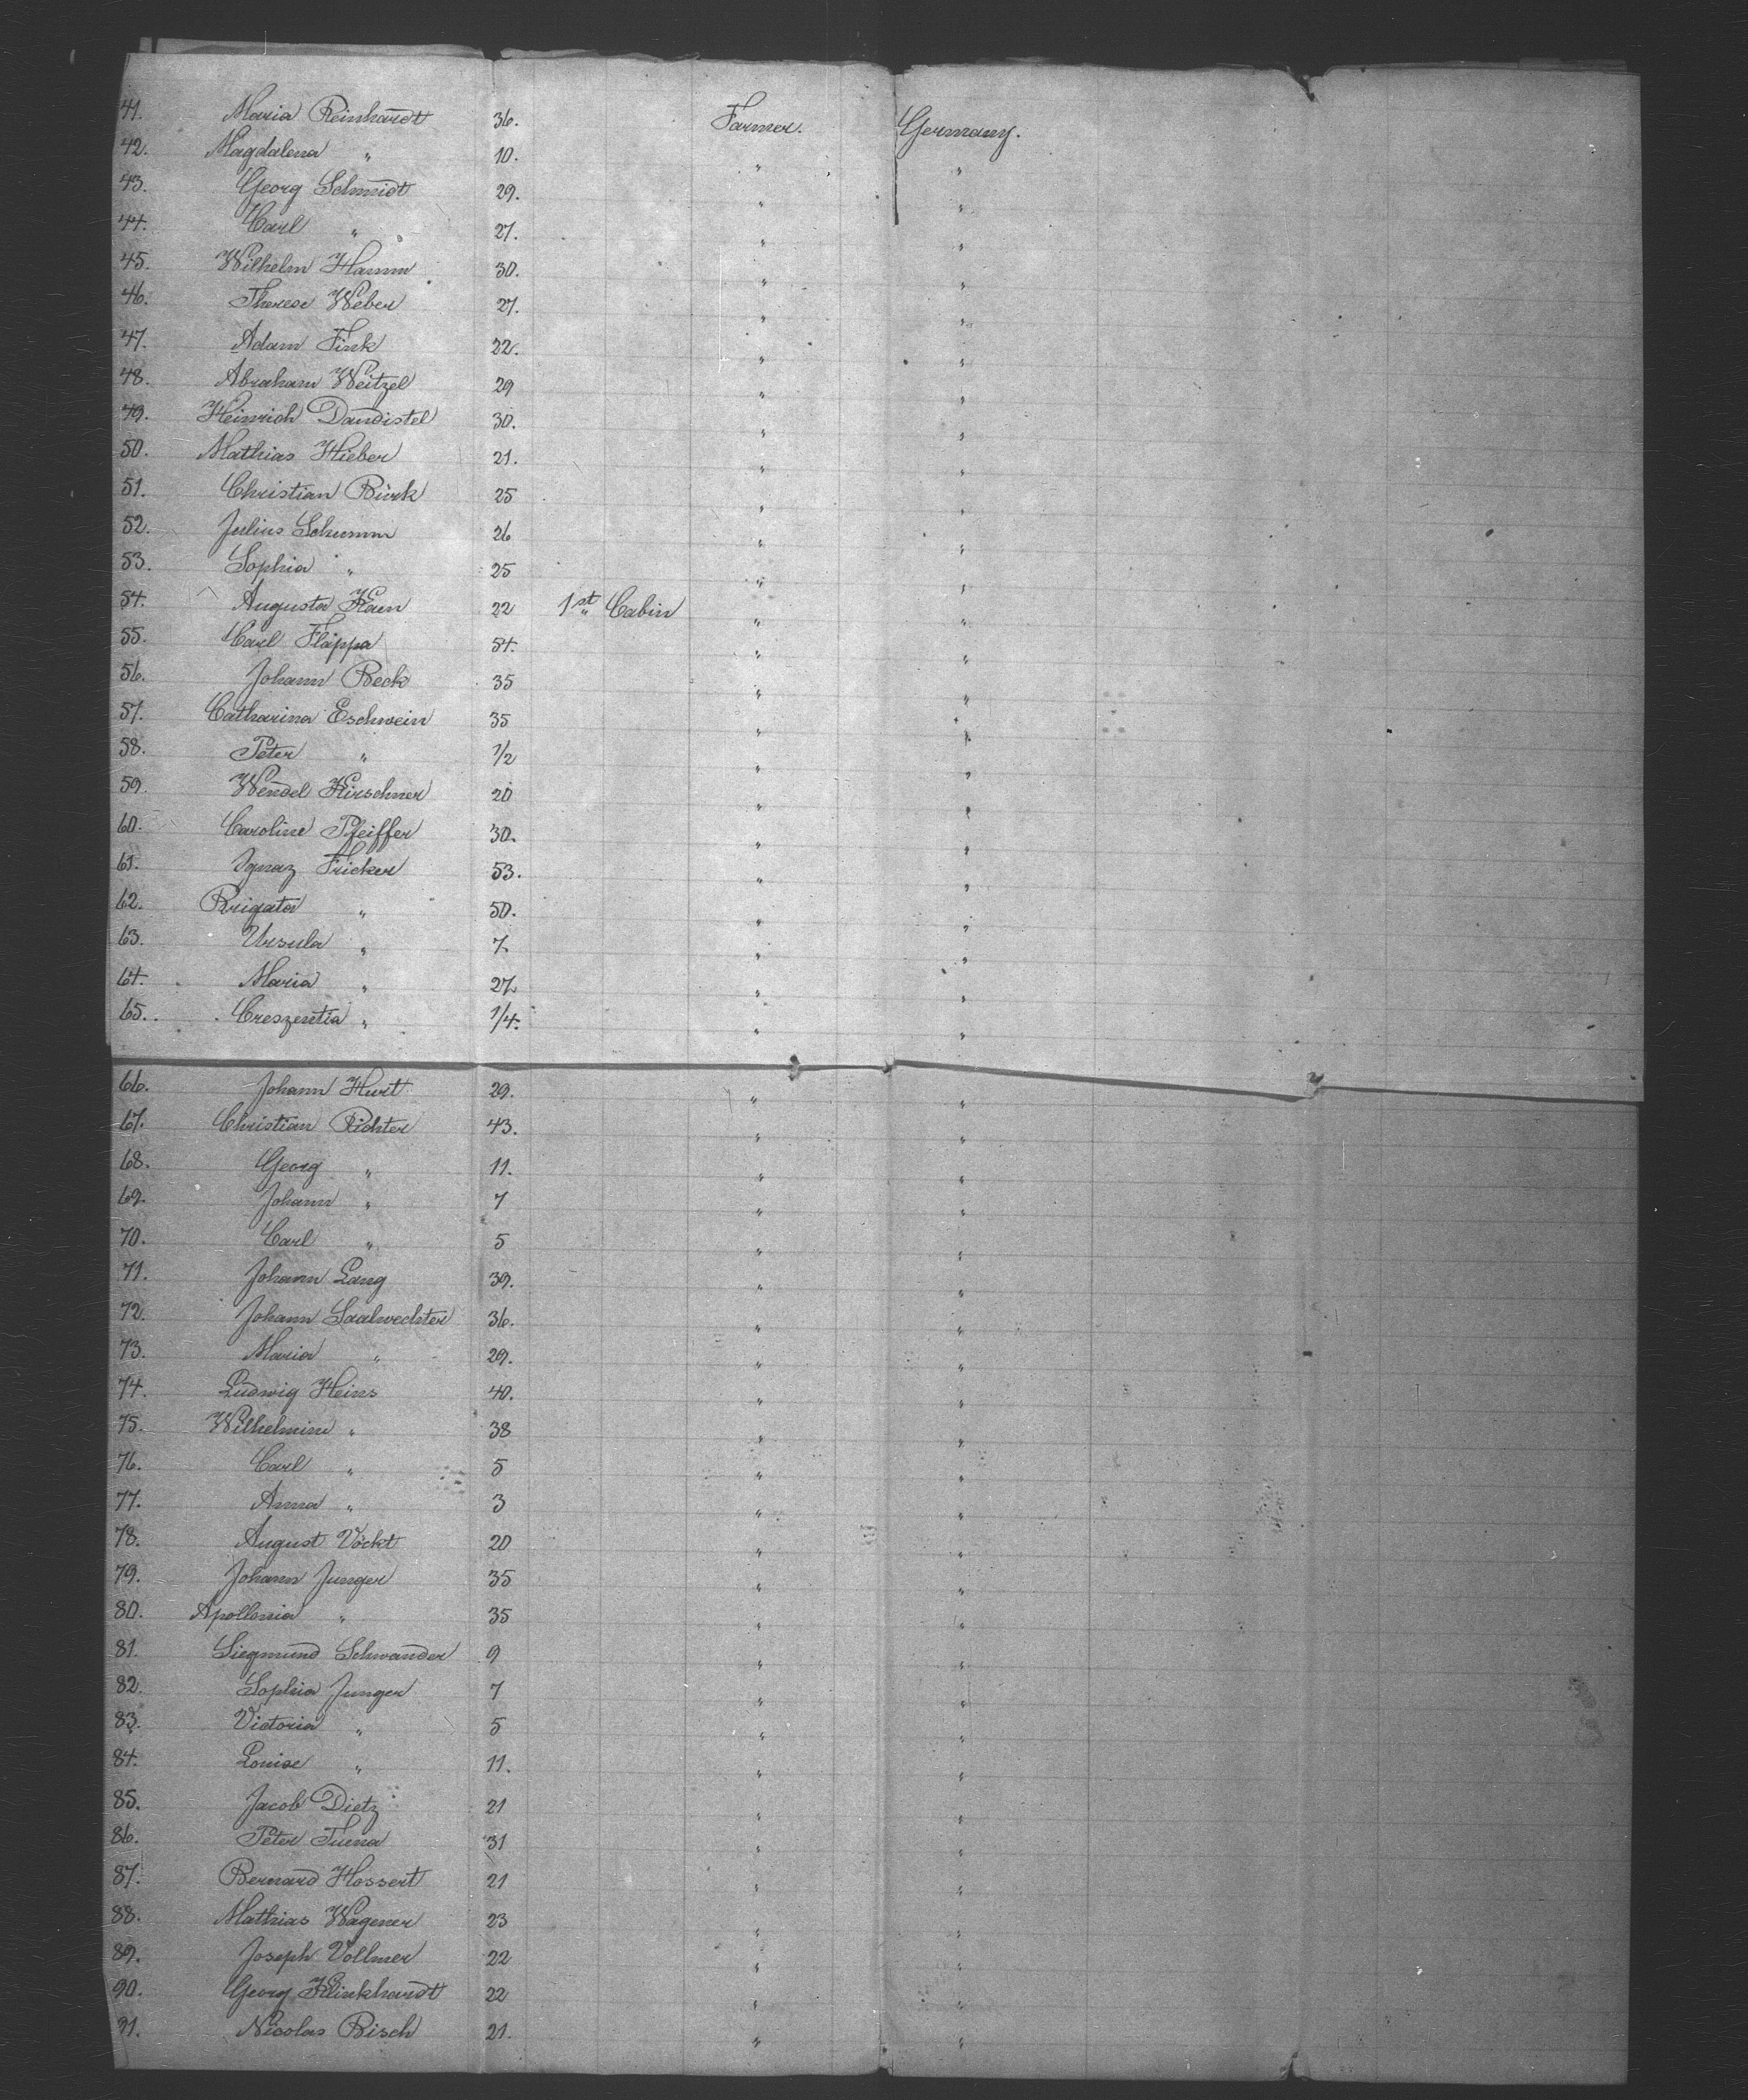 41. Maria Reinhardt 36. Farmer. Germany.
42. Magdalena " 10. " "
43. Georg Schmidt 29. " "
44. Carl " 27. " "
45. Wilhelm Hamm 30. " "
46. Therese Weber 27. " "
47. Adam Fink 22. " "
48. Abraham Weitzel 29 " "
49. Heinrich Dandistel 30. " "
50. Mathias Hieber 21. " "
51. Christian Bürk 25 " "
52. Julius Schumm 26 " "
53. Sophia " 25 " "
54. Augusta 22 1st Cabin " "
55. Carl Flappa 54. " "
56. Johann Beck 35 " "
57. Catharina Eschwein 35 " "
58. Peter " 1/2 " "
59. Wendel Kirschner 20 " "
60. Caroline Pfeiffer 30. " "
61. Ignaz Fricker 53. " "
62. Brigata " 50. " "
63. Ursula " 7. " "
64. Maria " 27. " "
65. Creszentia " 1/4. " "
66. Johann Hurt 29. " "
67. Christian Richter 43. " "
68. Georg " 11. " "
69. Johann " 7 " "
70. Carl " 5 " "
71. Johann Lang 39. " "
72. Johann Saalwechter 36. " "
73. Maria " 29. " "
74. Ludwig Heins 40. " "
75. Wilhelmine " 38 " "
76. Carl " 5 " "
77. Anna " 3 " "
78. August Vöckt 20 " "
79. Johann Junger 35 " "
80. Apollonia " 35 " "
81. Siegmund Schwander 9 " "
82. Sophia Junger 7 " "
83. Victoria " 5 " "
84. Louise " 11. " "
85. Jacob Dietz 21 " "
86. Peter 31 " "
87. Bernard Hossert 21 " "
88. Mathias Wagener 23 " "
89. Joseph Vollmer 22 " "
90. Georg Klinkhardt 22 " "
91. Nicolas Bisch 21. " "